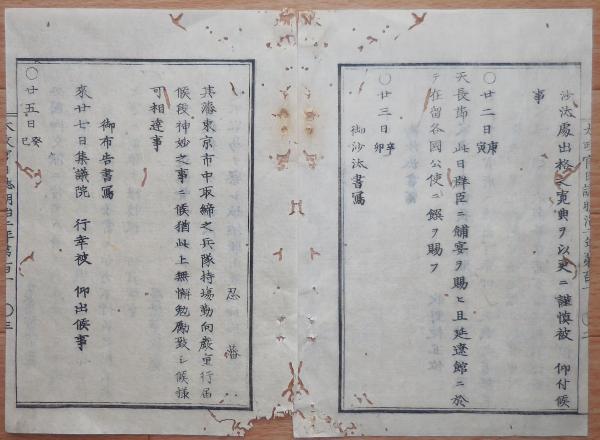 沙汰處出格之寛典ヲ以更ニ謹慎被　仰付候
事
○廿二日庚寅
天長節ニ此日群臣ニ酺宴ヲ賜ヒ且延遼館ニ於
テ在留各國公使ニ饌ヲ賜フ
○廿三日辛卯
御沙汰書寫
忍藩
其藩東京市中取締之兵隊持場勤向嚴重行届
候段神妙之事ニ候猶此上無懈勉勵致シ候様
可相達事
御布告書寫
來廿七日集議院　行幸被　仰出候事
○廿五日癸巳